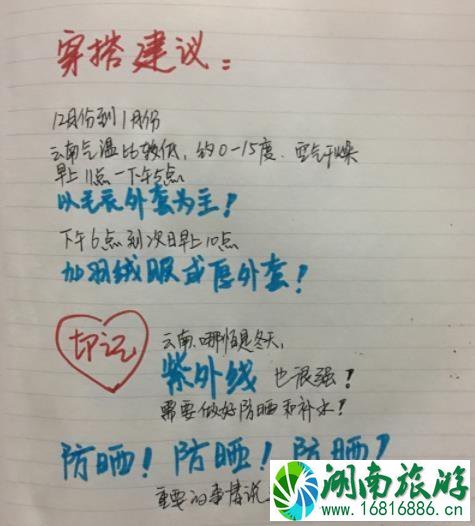 穿搭建议:
12月份到1月份
云南气温比较低,约0-15度.空气干燥
早上11点-下午5点
以毛衣外套为主!
下午6点到次日早上10点
加羽绒服或厚外套!
切记
云南.哪怕是冬天,
紫外线也很强!
需要做好防晒和补水!
防晒!防晒!防晒!
重要的事情说
湖南旅游
www.16816886.cn